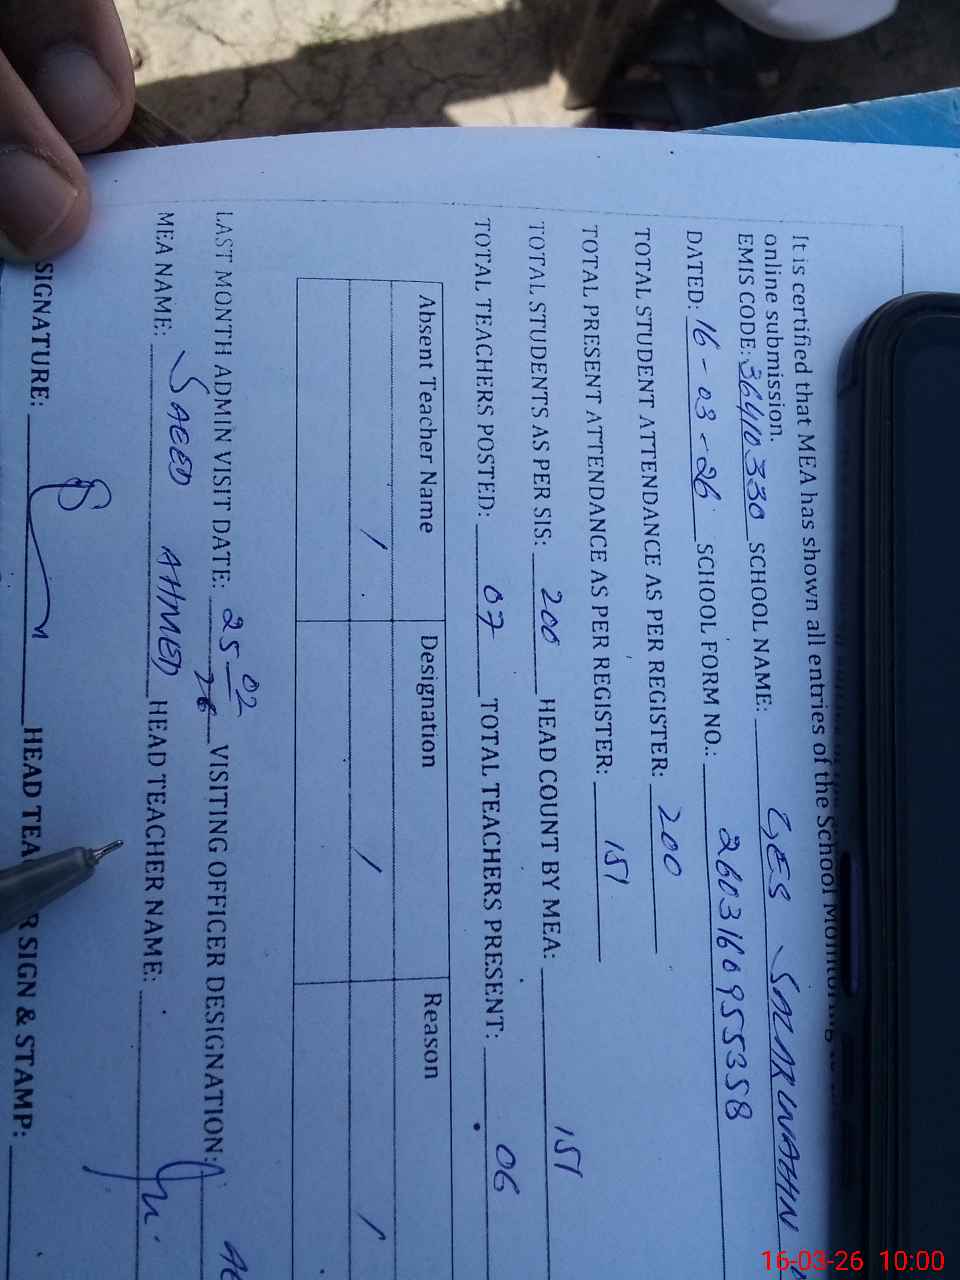 It is certified that MEA has shown all entries of the School Monitoring
online submission.
EMIS CODE: 36410330 SCHOOL NAME: GES
DATED: 16-03-26 SCHOOL FORM NO.: 260316095535 8
TOTAL STUDENT ATTENDANCE AS PER REGISTER: 200
TOTAL PRESENT ATTENDANCE AS PER REGISTER: 151
TOTAL STUDENTS AS PER SIS: 200 HEAD COUNT BY MEA: 151
TOTAL TEACHERS POSTED: 07 TOTAL TEACHERS PRESENT: 06
Absent Teacher Name Designation Reason
/ / /
LAST MONTH ADMIN VISIT DATE: 25-02-26 VISITING OFFICER DESIGNATION:
MEA NAME: SAEED AHMED HEAD TEACHER NAME:
SIGNATURE: HEAD TEACHER SIGN & STAMP:
16-03-26 10:00